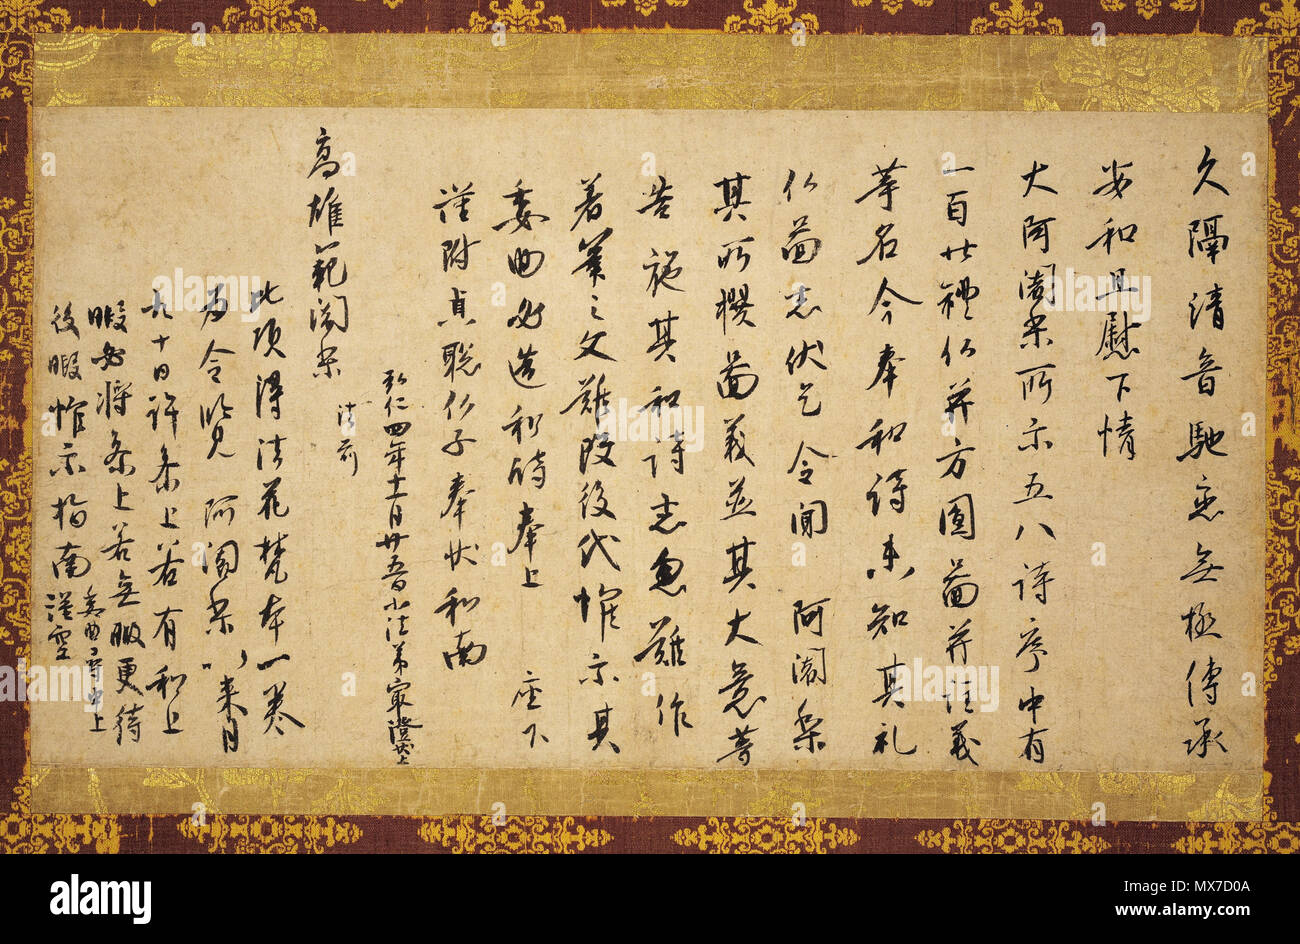 久隔清音馳恋無極傳承
安和且慰下情
大阿闍梨所示五八詩序中有
一百廿禮仏并方圓圖并註義
等名今奉和詩未知其礼
仏圖者伏乞令聞 阿闍梨
其所撰圖義並其大意等
告施其和詩者忽難作
著筆之文難改後代惟示其
委曲必造和詩奉上 座下
謹附貞聡仏子奉状和南
弘仁四年十一月廿五日小法弟最澄状上
高雄範闍梨 法前
此頃得法花梵本一巻
為令覧 阿闍梨以来月
九十日許参上若有和上
暇必将参上若無暇更待
後暇惟示指南 委曲尋申上
謹空
alamy
Image ID: MX7D0A
www.alamy.com